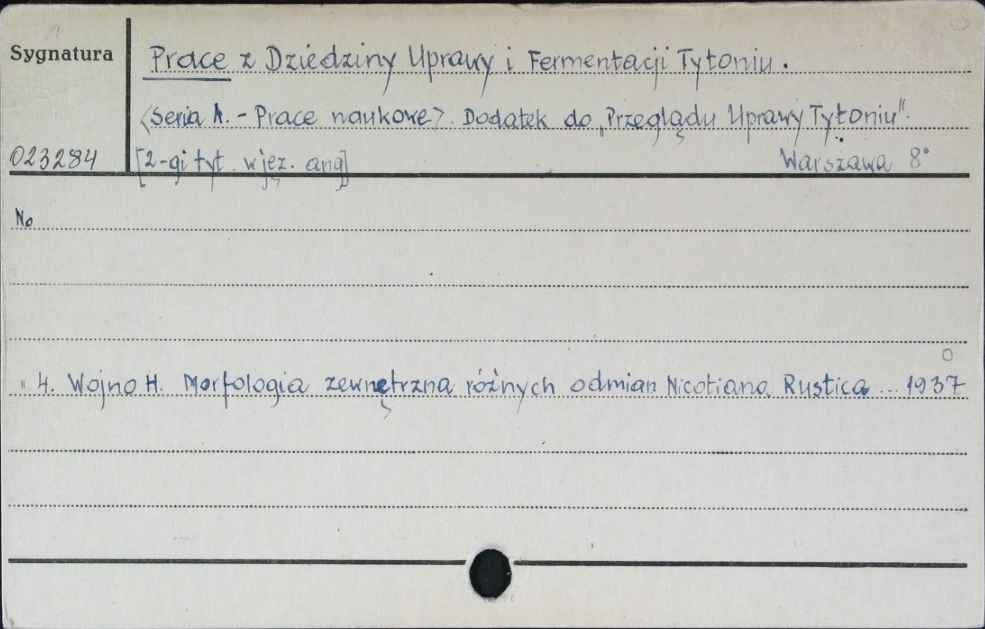 Sygnatura
Prace z Dziedziny Uprawy i Fermentacji Tytoniu.
<Seria A. - Prace naukowe>. Dodatek do „Przeglądu Uprawy Tytoniu".
023284 [2-gi tyt. w jęz. ang] Warszawa 8°
No
" 4. Wojno H. Morfologia zewnętrzna różnych odmian Nicotiana Rustica ... 1937